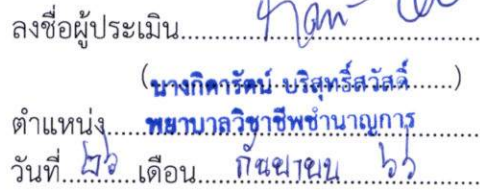 ลงชื่อผู้ประเมิน
(นางกิดารัตน์ บริสุทธิ์สวัสดิ์)
ตำแหน่ง พยาบาลวิชาชีพชำนาญการ
วันที่ ๒๖ เดือน กันยายน ๖๖